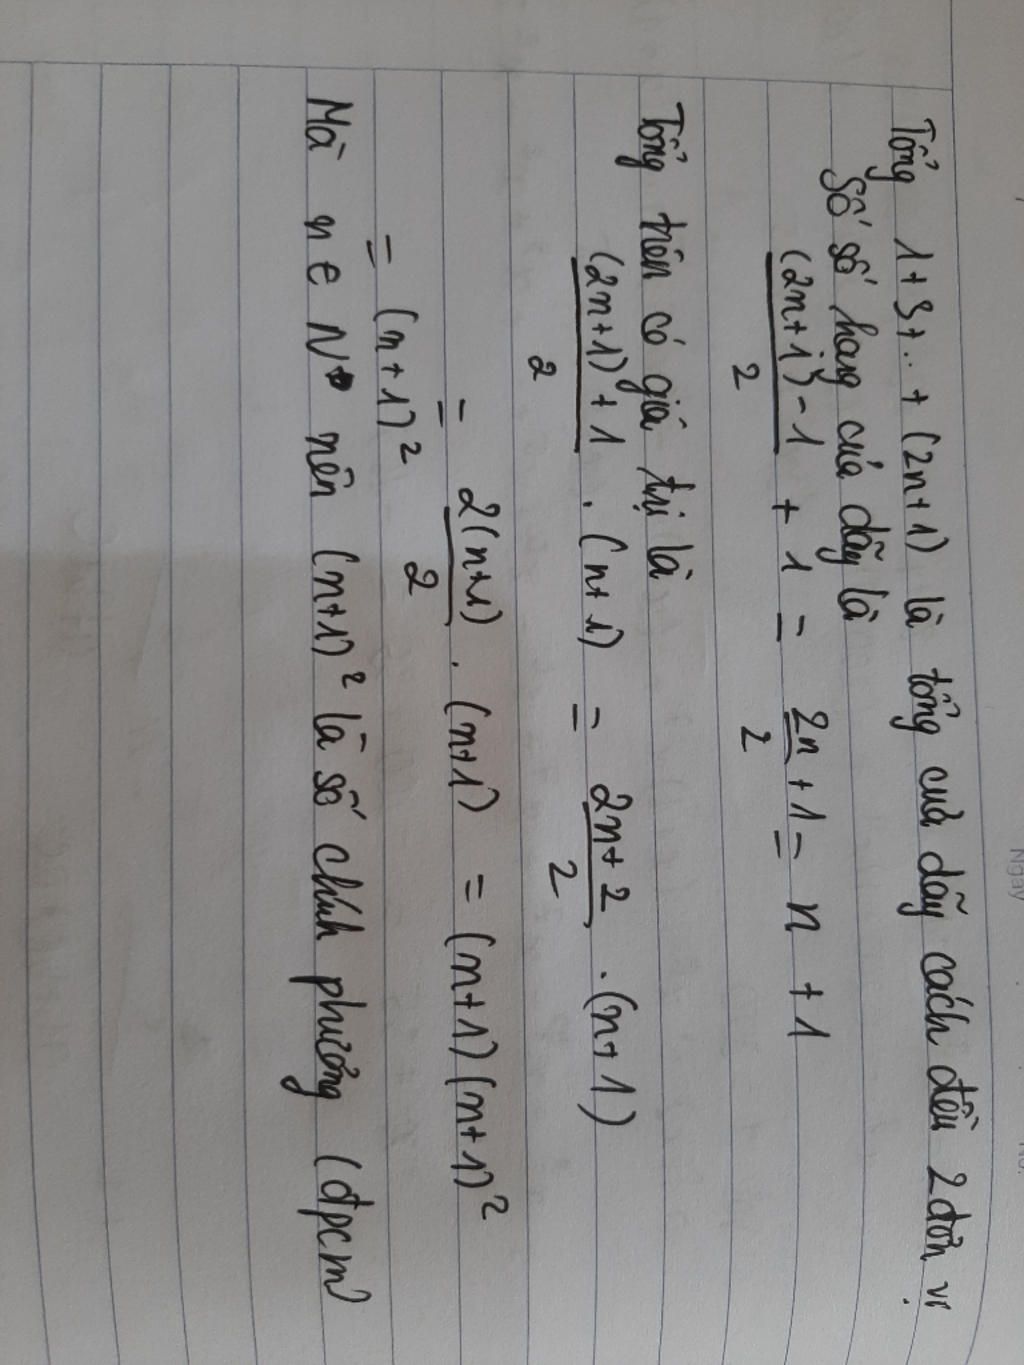 Tổng 1+3+..+ (2n+1) là tổng của dãy cách đều 2 đơn vị.
Số số hạng của dãy là
((2n+1)-1)/2 + 1 = 2n/2 + 1 = n + 1
Tổng trên có giá trị là
((2n+1)+1)/2 . (n+1) = (2n+2)/2 . (n+1)
= 2(n+1)/2 . (n+1) = (n+1)(n+1)²
= (n+1)²
Mà n ∈ N nên (n+1)² là số chính phương (đpcm)
Ngày
No.